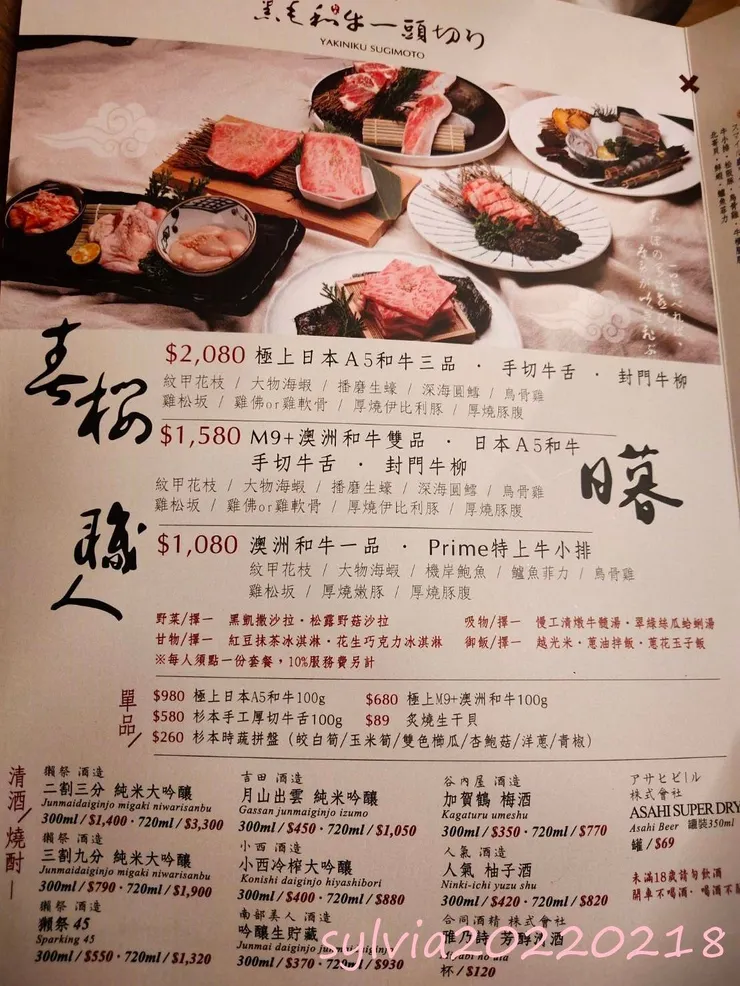 黑毛和牛一頭切り
YAKINIKU SUGIMOTO
春桜
$2,080 極上日本A5和牛三品 · 手切牛舌 · 封門牛柳
紋甲花枝 / 大物海蝦 / 播磨生蠔 / 深海圓鱈 / 烏骨雞
雞松坂 / 雞佛or雞軟骨 / 厚燒伊比利豚 / 厚燒豚腹
日暮
$1,580 M9+澳洲和牛雙品 · 日本A5和牛
手切牛舌 · 封門牛柳
紋甲花枝 / 大物海蝦 / 播磨生蠔 / 深海圓鱈 / 烏骨雞
雞松坂 / 雞佛or雞軟骨 / 厚燒伊比利豚 / 厚燒豚腹
職人
$1,080 澳洲和牛一品 · Prime特上牛小排
紋甲花枝 / 大物海蝦 / 機岸鮑魚 / 鱸魚菲力 / 烏骨雞
雞松坂 / 厚燒嫩豚 / 厚燒豚腹
野菜/擇一 黑凱撒沙拉·松露野菇沙拉
吸物/擇一 慢工清燉牛髓湯·翠綠絲瓜蛤蜊湯
甘物/擇一 紅豆抹茶冰淇淋·花生巧克力冰淇淋
御飯/擇一 越光米·蔥油拌飯·蔥花玉子飯
※每人須點一份套餐，10%服務費另計
單品/
$980 極上日本A5和牛100g
$680 極上M9+澳洲和牛100g
$580 杉本手工厚切牛舌100g
$89 炙燒生干貝
$260 杉本時蔬拼盤（皎白筍/玉米筍/雙色櫛瓜/杏鮑菇/洋蔥/青椒）
清酒/燒酎
獺祭 酒造
二割三分 純米大吟釀
Junmaidaiginjo migaki niwarisanbu
300ml / $1,400 · 720ml / $3,300
獺祭 酒造
三割九分 純米大吟釀
Junmaidaiginjo migaki niwarisanbu
300ml / $790 · 720ml / $1,900
獺祭 酒造
獺祭 45
Sparking 45
300ml / $550 · 720ml / $1,320
吉田 酒造
月山出雲 純米吟釀
Gassan junmaiginjo izumo
300ml / $450 · 720ml / $1,050
小西 酒造
小西冷榨大吟釀
Konishi daiginjo hiyashibori
300ml / $400 · 720ml / $880
南部美人 酒造
吟釀生貯藏
Junmai daiginjo junmaiginjo
300ml / $370 · 720ml / $930
谷內屋 酒造
加賀鶴 梅酒
Kagaturu umeshu
300ml / $350 · 720ml / $770
人氣 酒造
人氣 柚子酒
Ninki-ichi yuzu shu
300ml / $420 · 720ml / $820
合同酒精 株式會社
雅乃詩 芳醇清酒
Miyabi no uta
杯 / $120
アサヒビール
株式會社
ASAHI SUPER DRY
Asahi Beer 罐裝350ml
罐 / $69
未滿18歲請勿飲酒
開車不喝酒· 喝酒不開
sylvia20220218